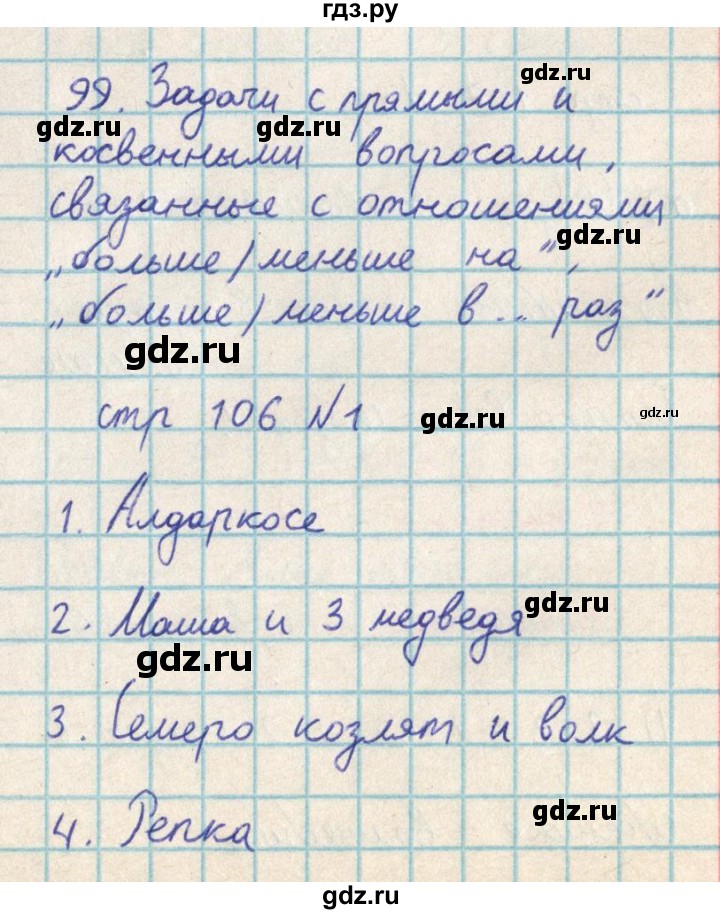 гдз.ру
99. Задачи с прямыми и
gdz.ru
gdz.ru
gdz.ru
косвенными вопросами,
связанные с отношениями
gdz.ru
„больше/меньше на",
„больше/меньше в .. раз"
gdz.ru
стр 106 №1
gdz.ru
gdz.ru
1. Алдаркосе
gdz.ru
2. Маша и 3 медведя
gdz.ru
3. Семеро козлят и волк
gdz.ru
4. Репка
gdz.ru